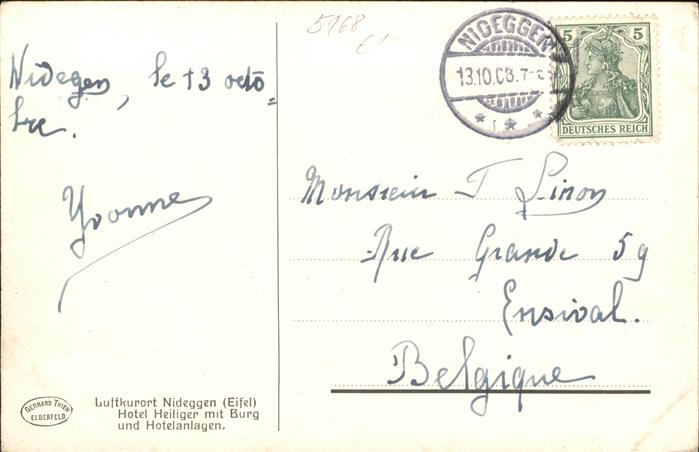 5168
NIDEGGEN
13.10.08.7-8
5 5
DEUTSCHES REICH
Nideggen, le 13 octo=
bre.
Yvonne
Monsieur J Simon
Rue Grande 59
Ensival.
Belgique
GERHARD THIEN
ELBERFELD
Luftkurort Nideggen (Eifel)
Hotel Heiliger mit Burg
und Hotelanlagen.